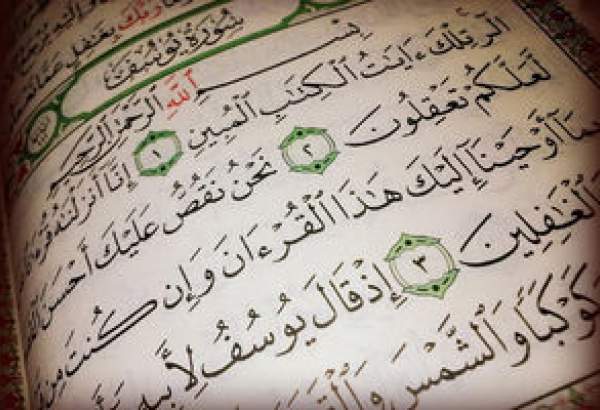 رَبُّكَ بِغَٰفِلٍ عَمَّا
سُورَةُ يُوسُفَ
بِسْمِ ٱللَّهِ ٱلرَّحْمَٰنِ ٱلرَّحِيمِ
الٓر تِلْكَ ءَايَٰتُ ٱلْكِتَٰبِ ٱلْمُبِينِ ١ إِنَّآ أَنزَلْنَٰهُ
لَّعَلَّكُمْ تَعْقِلُونَ ٢ نَحْنُ نَقُصُّ عَلَيْكَ أَحْسَنَ
بِمَآ أَوْحَيْنَآ إِلَيْكَ هَٰذَا ٱلْقُرْءَانَ وَإِن كُنتَ مِن
ٱلْغَٰفِلِينَ ٣ إِذْ قَالَ يُوسُفُ لِأَبِيهِ
كَوْكَبًا وَٱلشَّمْسَ